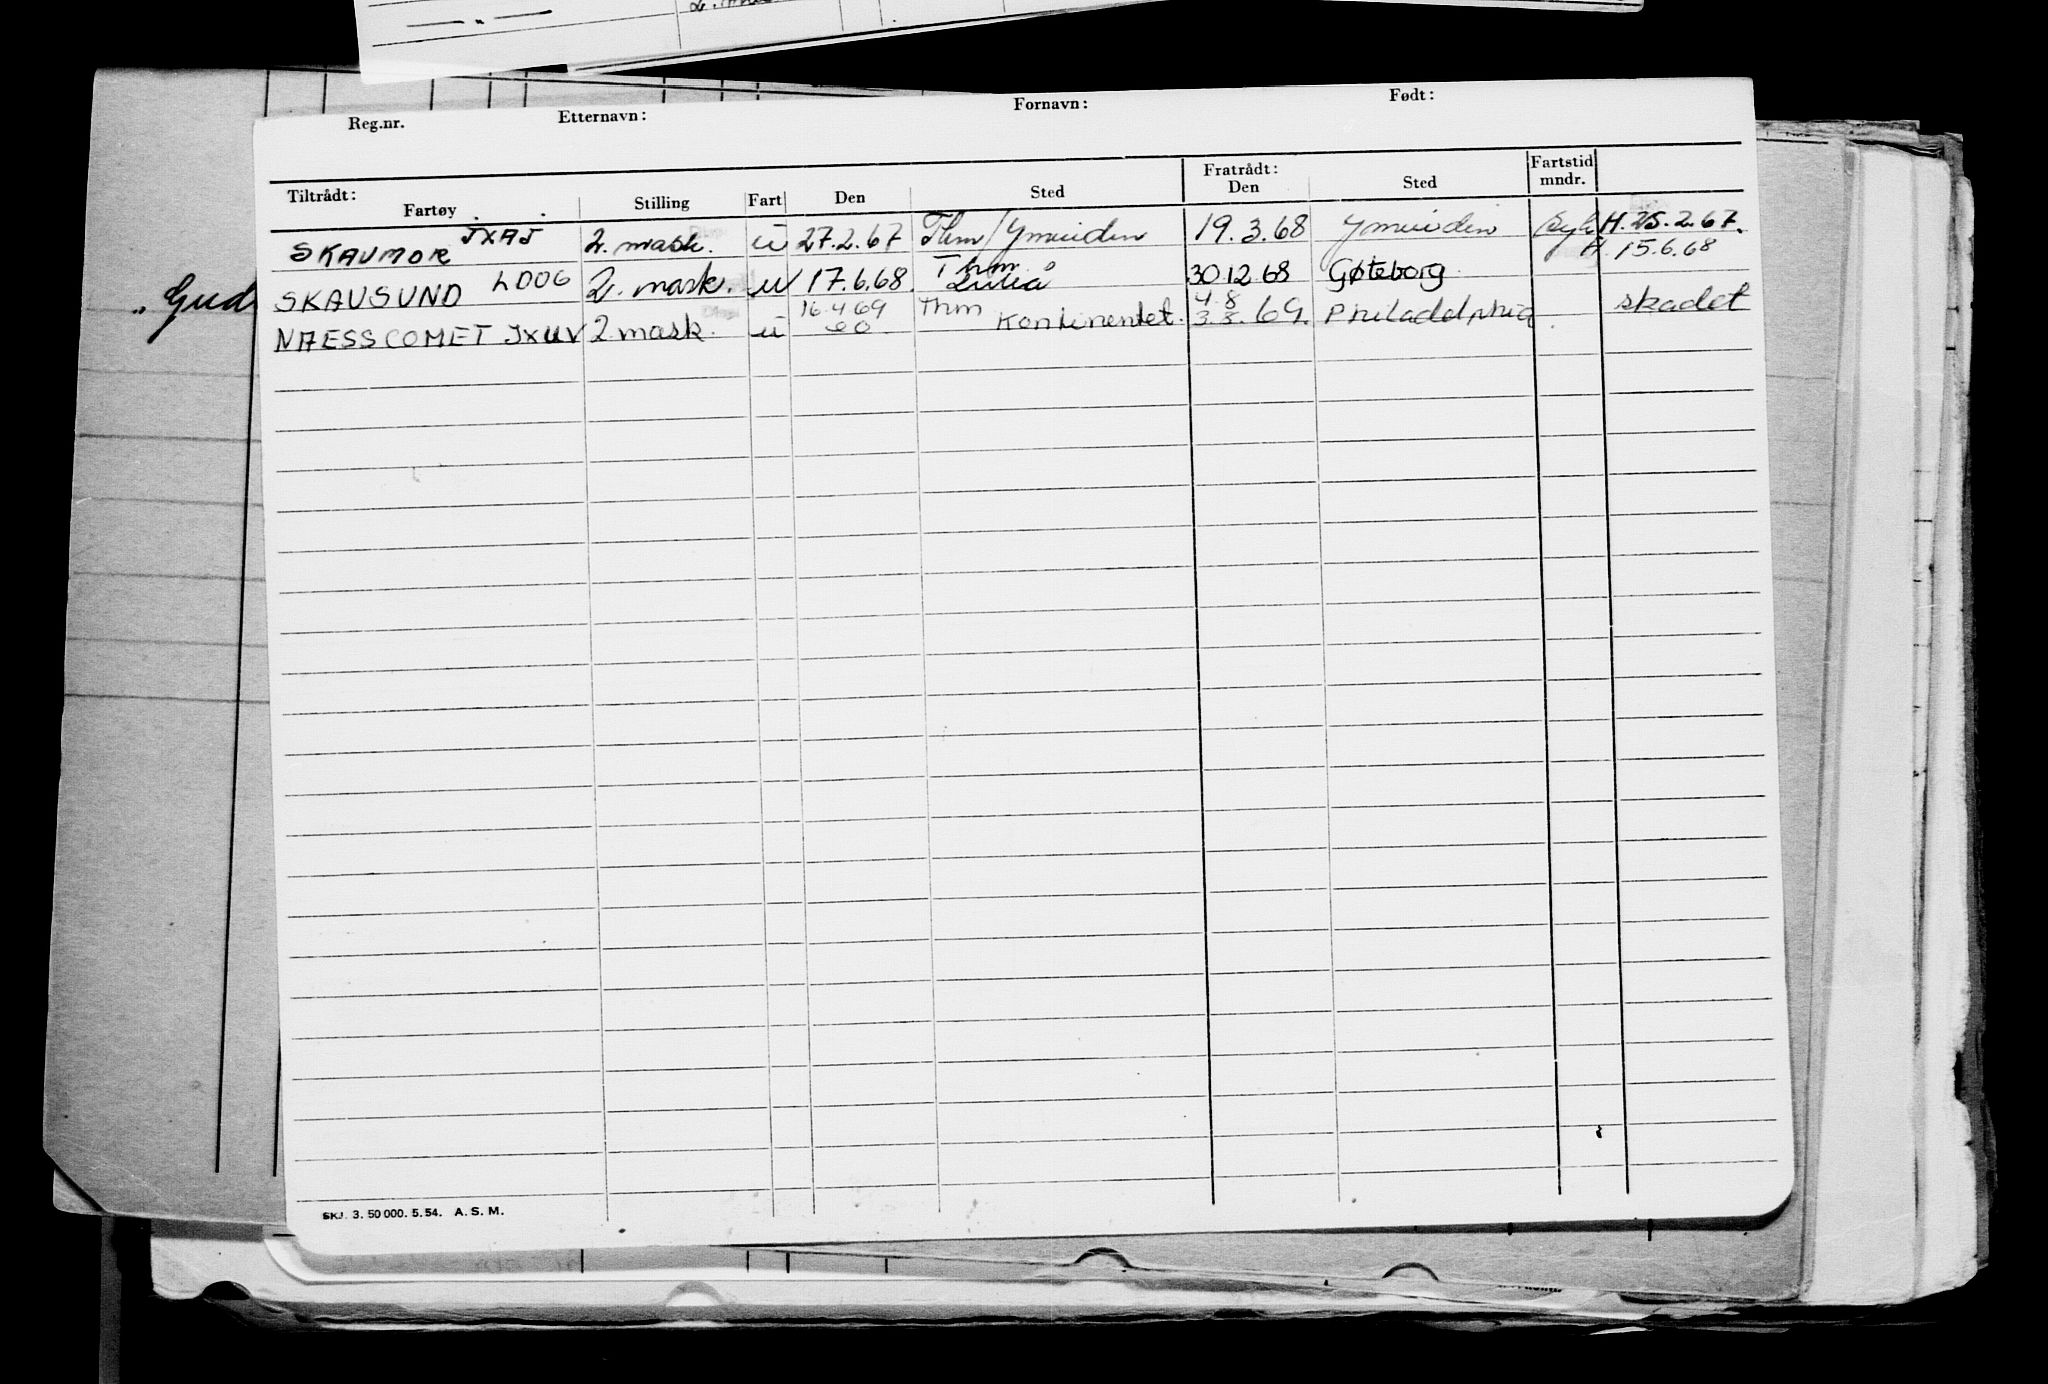 Reg.nr. Etternavn: Fornavn: Født:
Tiltrådt: Fratrådt: Fartstid
Fartøy Stilling Fart Den Sted Den Sted mndr.
SKAUMOR JXAJ 2. mask. u 27.2.67 Thm/Ymuiden 19.3.68 Ymuiden Syk H. 25.2.67.
H 15.6.68
SKAUSUND LDOG 2. mask. u 17.6.68. Thm Luleå 30.12.68 Gøteborg
NAESS COMET JXUV 2 mask. u 16.4.69 Thm Kontinentet. 69. Philadelphia skadet
"Gud
SKJ. 3. 50 000. 5. 54. A. S. M.